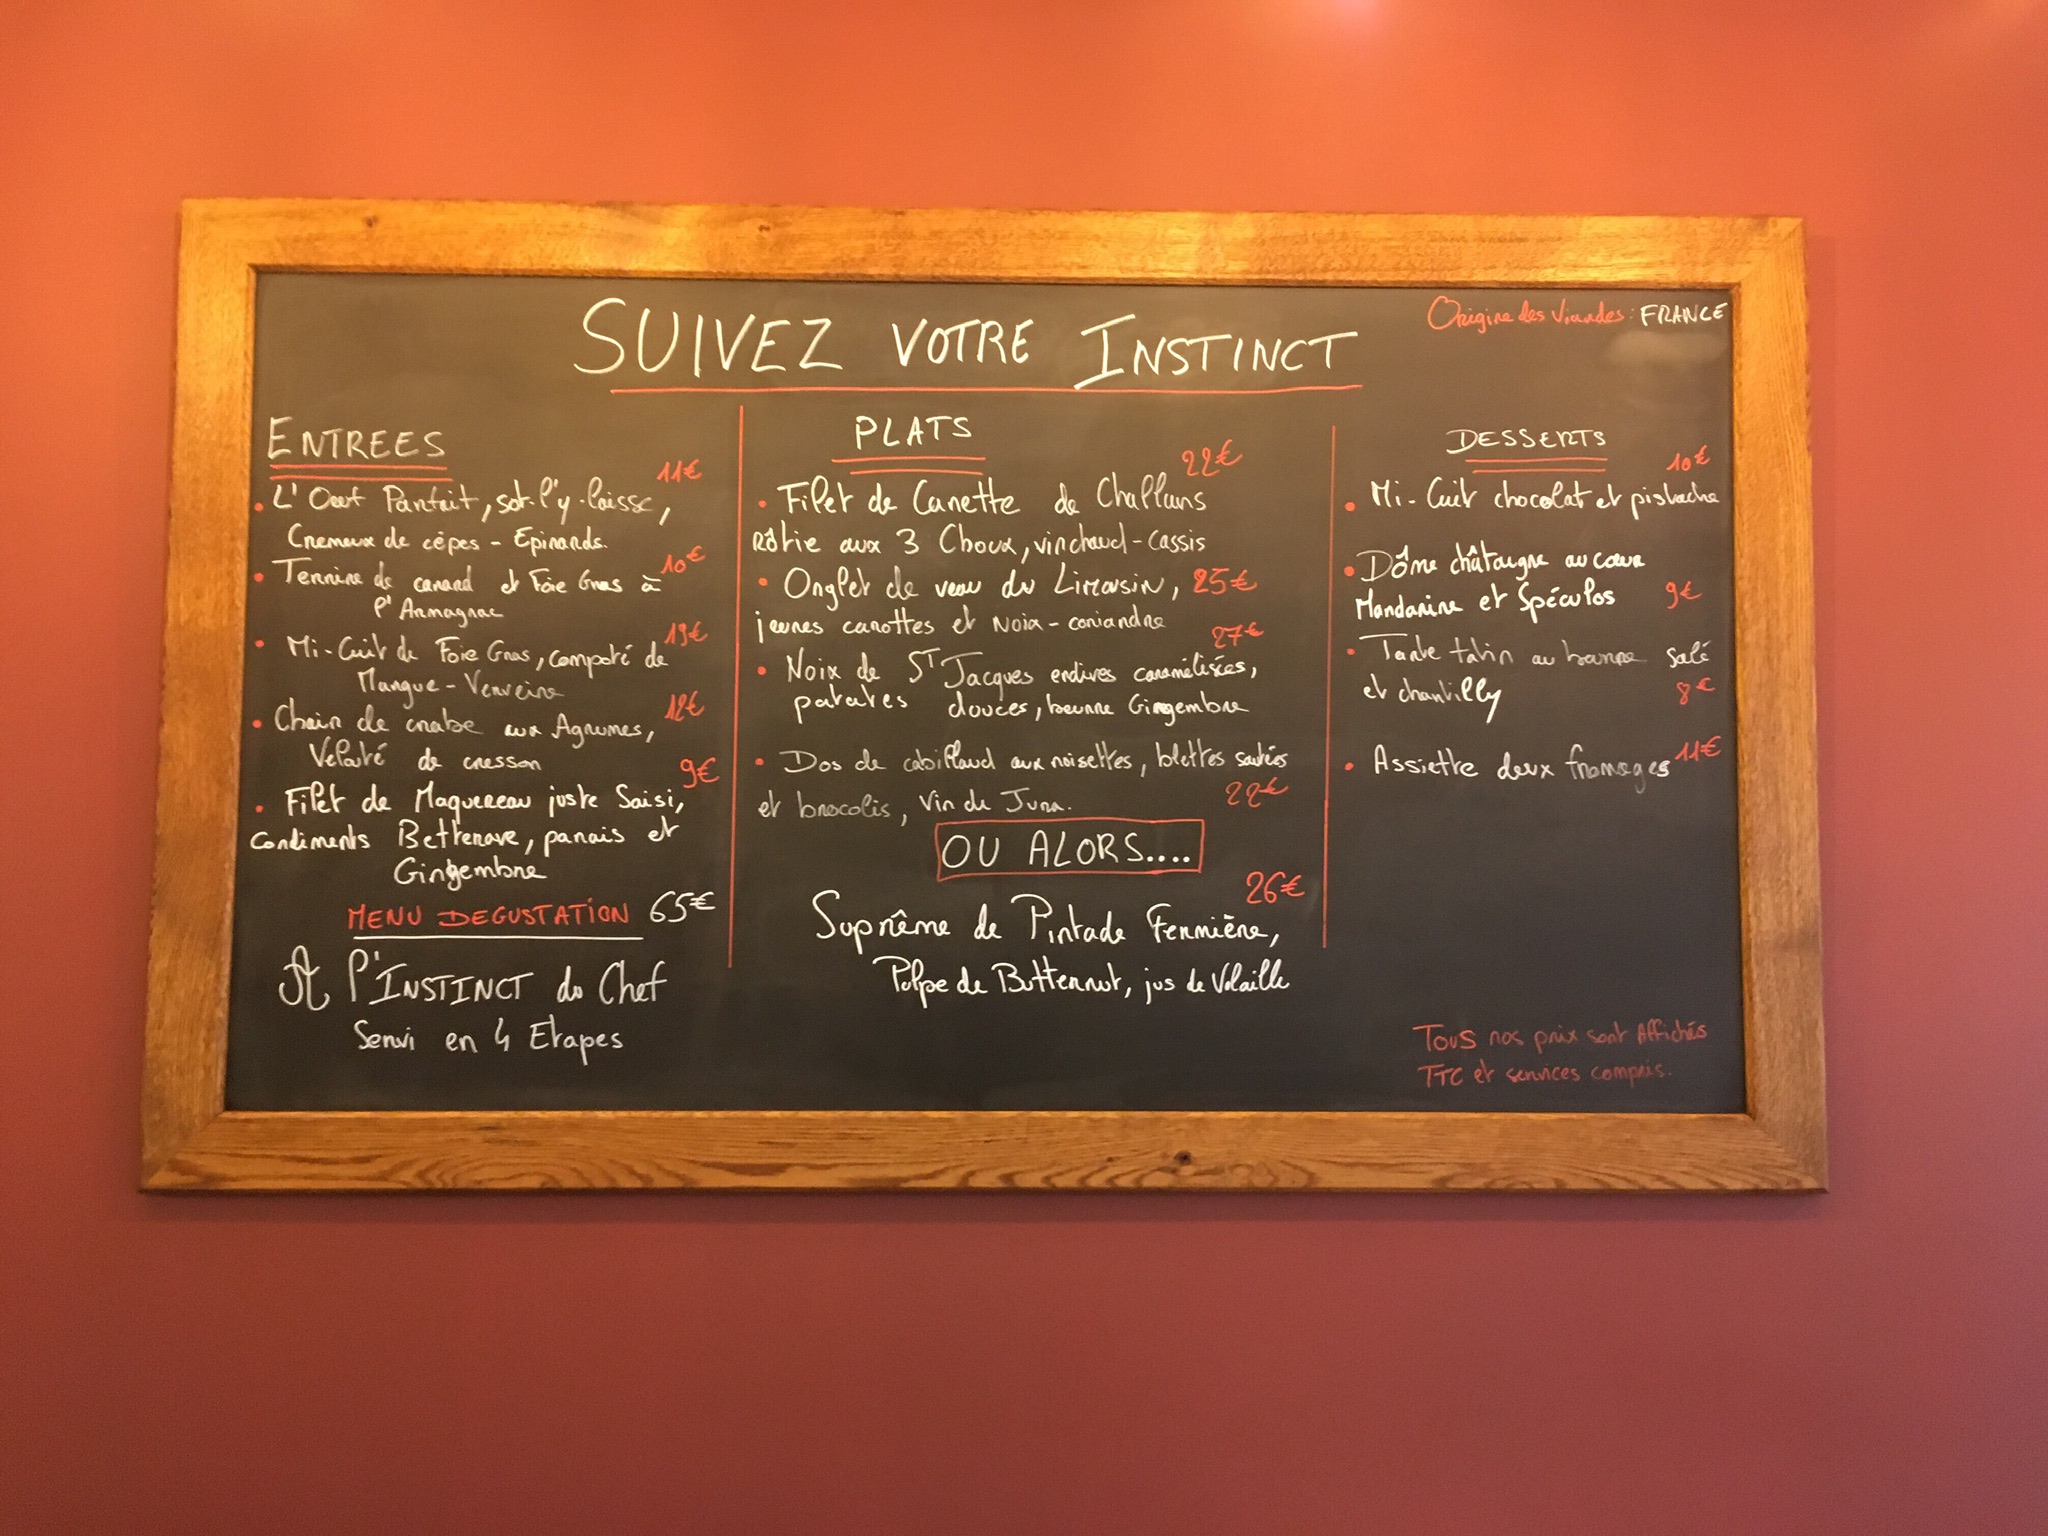 SUIVEZ VOTRE INSTINCT
Origine des Viandes : FRANCE
ENTREES
11€
• L'Oeuf Parfait, sot-l'y-laisse,
Cremeux de cèpes - Epinards.
10€
• Terrine de canard et Foie Gras à
l'Armagnac
• Mi-Cuit de Foie Gras, compoté de
Mangue - Verveine
12€
• Chair de crabe aux Agrumes,
Velouté de cresson
9€
• Filet de Maquereau juste Saisi,
Condiments Betterave, panais et
Gingembre
MENU DEGUSTATION 65€
A l'INSTINCT du Chef
Servi en 4 Etapes
PLATS
22€
• Filet de Canette de Challans
rôtie aux 3 Choux, vin chaud - cassis
• Onglet de veau du Limousin, 25€
jeunes carottes et Noix - coriandre
27€
• Noix de ST Jacques endives caramélisées,
patates douces, beurre Gingembre
• Dos de cabillaud aux noisettes, blettes sautées
et brocolis, Vin du Jura. 22€
OU ALORS....
26€
Suprême de Pintade Fermière,
Pulpe de Butternut, jus de Volaille
DESSERTS
10€
• Mi-Cuit chocolat et pistache
• Dôme châtaigne au coeur
Mandarine et Spéculos 9€
• Tarte tatin au beurre salé
et chantilly 8€
• Assiette deux fromages 11€
Tous nos prix sont Affichés
TTC et services compris.